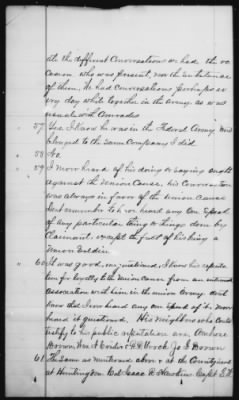 ate the different Conversations we had the oc
casion who was present, nor the substance
of them, We had Conversations perhaps ev
ery day while together in the Army as was
usual with Comrades
57 Yes I know he was in the Federal Army and
belonged to the same Company I did
58 No
59 I never heard of his doing or saying ought
against the Union Cause, his Conversation
was always in favor of the Union Cause
dont remember to have heard any one Speak
of any particular thing or things done by
Claimant, except the fact of his being a
Union Soldier
60 It was good, unquestioned, I know his reputa
tion for loyalty to the Union Cause from an intimate
association with him in the Union Army. dont
know that I ever heard any one speak of it, never
heard it questioned. His neighbors who could
testify to his public reputation are,
Brown, Wm H. & Jo S Brown
61 The same as mentioned above & at the
at Huntingdon Col Isaac R Hawkins Capt